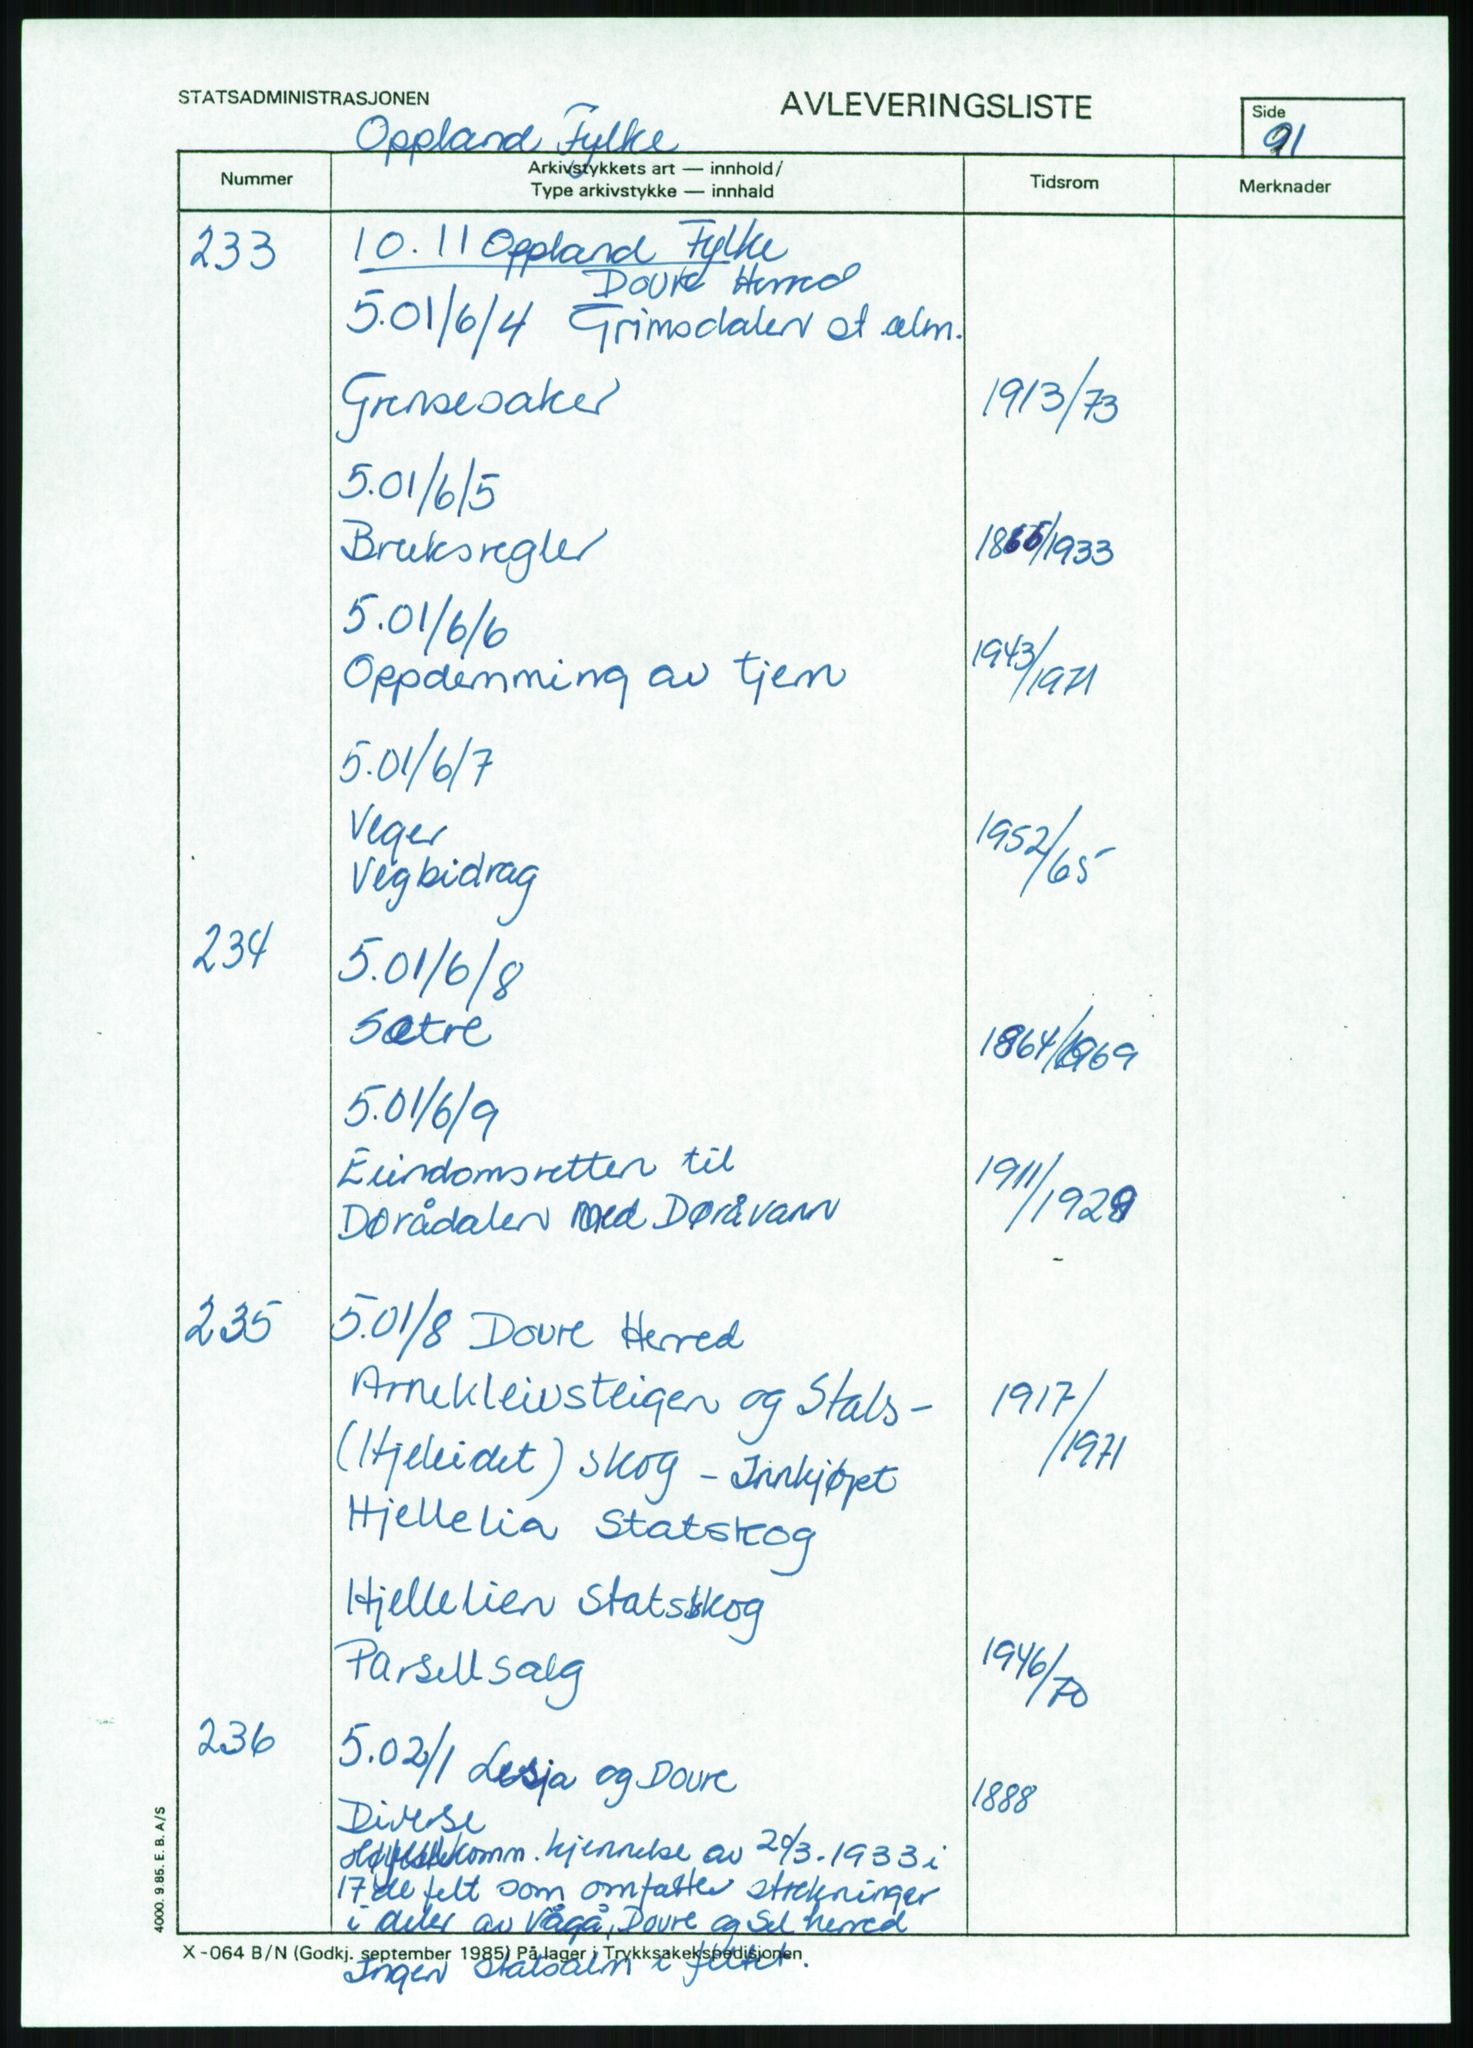 STATSADMINISTRASJONEN
AVLEVERINGSLISTE
Side
91
Oppland Fylke
Nummer
Arkivstykkets art — innhold/
Type arkivstykke — innhald
Tidsrom
Merknader
233 10.11 Oppland Fylke
Dovre Herred
5.01/6/4 Grimsdalen st alm.
Grensesaker 1913/73
5.01/6/5
Bruksregler 1866/1933
5.01/6/6
Oppdemming av tjern 1943/1971
5.01/6/7
Veger 1952/65
Vegbidrag
234 5.01/6/8
Sætre 1864/1969
5.01/6/9
Eiindomsretten til 1911/1929
Dørådalen med Døråvann
235 5.01/8 Dovre Herred
Arnekleivsteigen og Stals- 1917/
(Hjeleidet) skog - Innkjøpet /1971
Hjellelia Statskog
Hjellelien Statsskog
Parsellsalg 1946/70
236 5.02/1 Lesja og Dovre
Diverse 1888
Høyfjellskomm. kjennelse av 20/3-1933 i
17de felt som omfatter strekninger
i deler av Vågå, Dovre og Sel herred
Ingen Statsalm i feltet.
4000. 9.85. E. B. A/S
X-064 B/N (Godkj. september 1985) På lager i Trykksakekspedisjonen